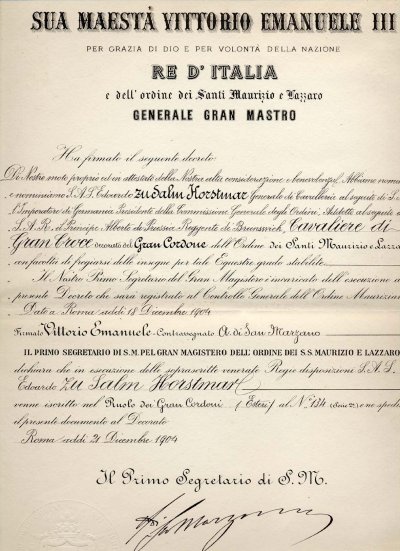 SUA MAESTÀ VITTORIO EMANUELE III
PER GRAZIA DI DIO E PER VOLONTÀ DELLA NAZIONE
RE D'ITALIA
e dell'ordine dei Santi Maurizio e Lazzaro
GENERALE GRAN MASTRO
Ha firmato il seguente decreto:
Di Nostro moto proprio ed in attestato della Nostra alta considerazione e benevolenza Abbiamo nomi
e nominiamo S.A.S. Edoardo zu Salm Horstmar Generale di Cavalleria al seguito di S.
l'Imperatore di Germania Presidente della Commissione Generale degli Ordini, Addetto al seguito di
S.A.R. il Principe Alberto di Prussia Reggente de Braunsweich, Cavaliere di
Gran Croce decorato del Gran Cordone dell'Ordine dei Santi Maurizio e Lazza
con facoltà di fregiarsi delle insegne per tale Equestre grado stabilite.
Il Nostro Primo Segretario del Gran Magistero è incaricato dell'esecuzione d
presente Decreto che sarà registrato al Controllo Generale dell'Ordine Maurizian
Dato a Roma addì 18 Dicembre 1904
Firmato Vittorio Emanuele - Contrassegnato A. di San Marzano
IL PRIMO SEGRETARIO DI S.M. PEL GRAN MAGISTERO DELL'ORDINE DEI S.S. MAURIZIO E LAZZARO
dichiara che in esecuzione delle soprascritte venerate Regie disposizioni S.A.S.
Edoardo Zu Salm Horstmar
venne iscritto nel Ruolo dei Gran Cordoni (Esteri) al N.º 134 (Serie 2ª) e ne spedi
il presente documento al Decorato
Roma addì 21 Dicembre 1904
Il Primo Segretario di S.M.